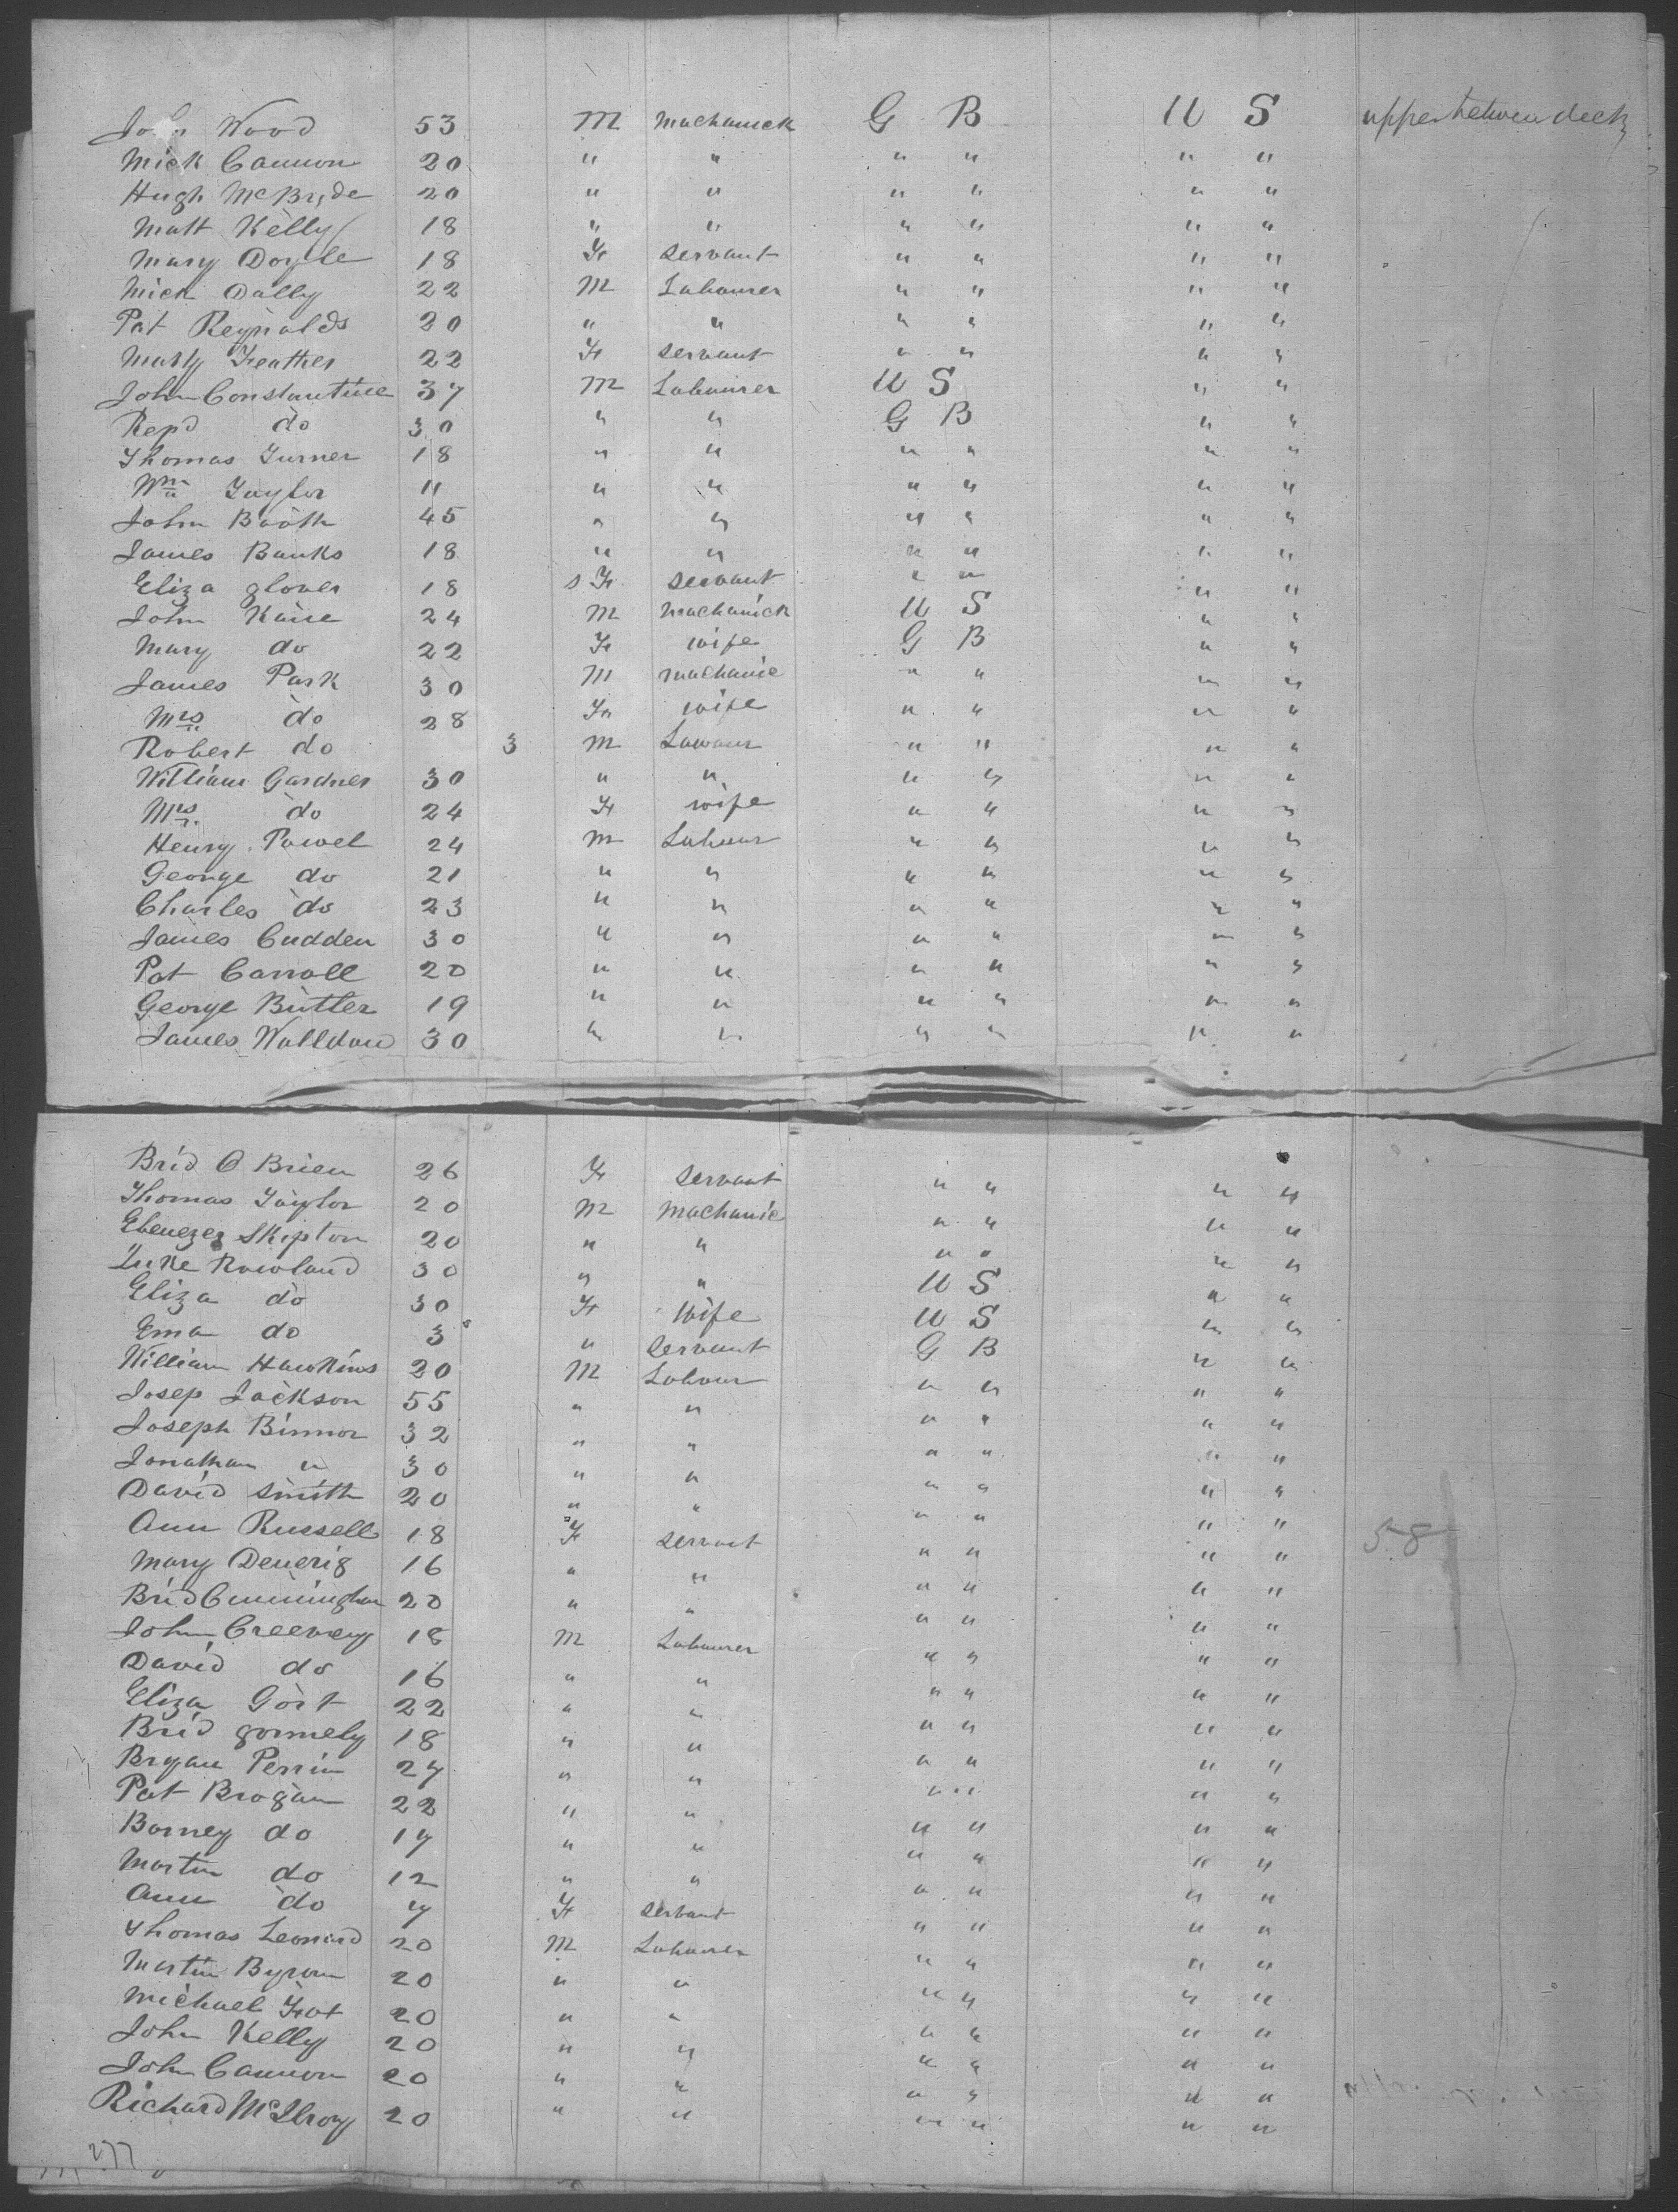 John Wood 53 M machanick G B U S upper between deck
Mick Cannon 20 " " " " " "
Hugh McBryde 20 " " " " " "
Matt Kelly 18 " " " " " "
Mary Doyle 18 F servant " " " "
Mick Dally 22 M Labourer " " " "
Pat Reynolds 20 " " " " " "
Mary Feather 22 F servant " " " "
John Constantine 37 M Labourer U S " "
Repd do 30 " " G B " "
Thomas Turner 18 " " " " " "
Wm Taylor " " " " " " "
John Booth 45 " " " " " "
James Banks 18 " " " " " "
Eliza glover 18 s F servant " " " "
John Kaise 24 M machanick U S " "
Mary do 22 F wife G B " "
James Park 30 M machanic " " " "
Mrs do 28 F wife " " " "
Robert do 3 M Lawour " " " "
William Gardner 30 " " " " " "
Mrs do 24 F wife " " " "
Henry Powel 24 M Labour " " " "
George do 21 " " " " " "
Charles do 23 " " " " " "
James Cudden 30 " " " " " "
Pat Carroll 20 " " " " " "
George Butler 19 " " " " " "
James Walldow 30 " " " " " "
Brid O Brien 26 F servant " " " "
Thomas Taylor 20 M machanic " " " "
Ebenezer Skipton 20 " " " " " "
Luke Rowland 30 " " U S " "
Eliza do 30 F wife U S " "
Ema do 3 " servant G B " "
William Hawkins 20 M Labour " " " "
Josep Jackson 55 " " " " " "
Joseph Binnor 32 " " " " " "
Jonathan " 30 " " " " " "
David Smith 20 " " " " " "
Ann Russell 18 F servant " " " " 58
Mary Deverig 16 " " " " " "
Brid Cunningham 20 " " " " " "
John Creevey 18 M Labourer " " " "
David do 16 " " " " " "
Eliza Gort 22 " " " " " "
Brid gormely 18 " " " " " "
Bryan Perrin 27 " " " " " "
Pat Brogan 22 " " " " " "
Barney do 17 " " " " " "
Martin do 12 " " " " " "
Ann do 7 F servant " " " "
Thomas Leonard 20 M Labourer " " " "
Martin Byron 20 " " " " " "
Michael Fox 20 " " " " " "
John Kelly 20 " " " " " "
John Cannon 20 " " " " " "
Richard McIlroy 20 " " " " " "
277